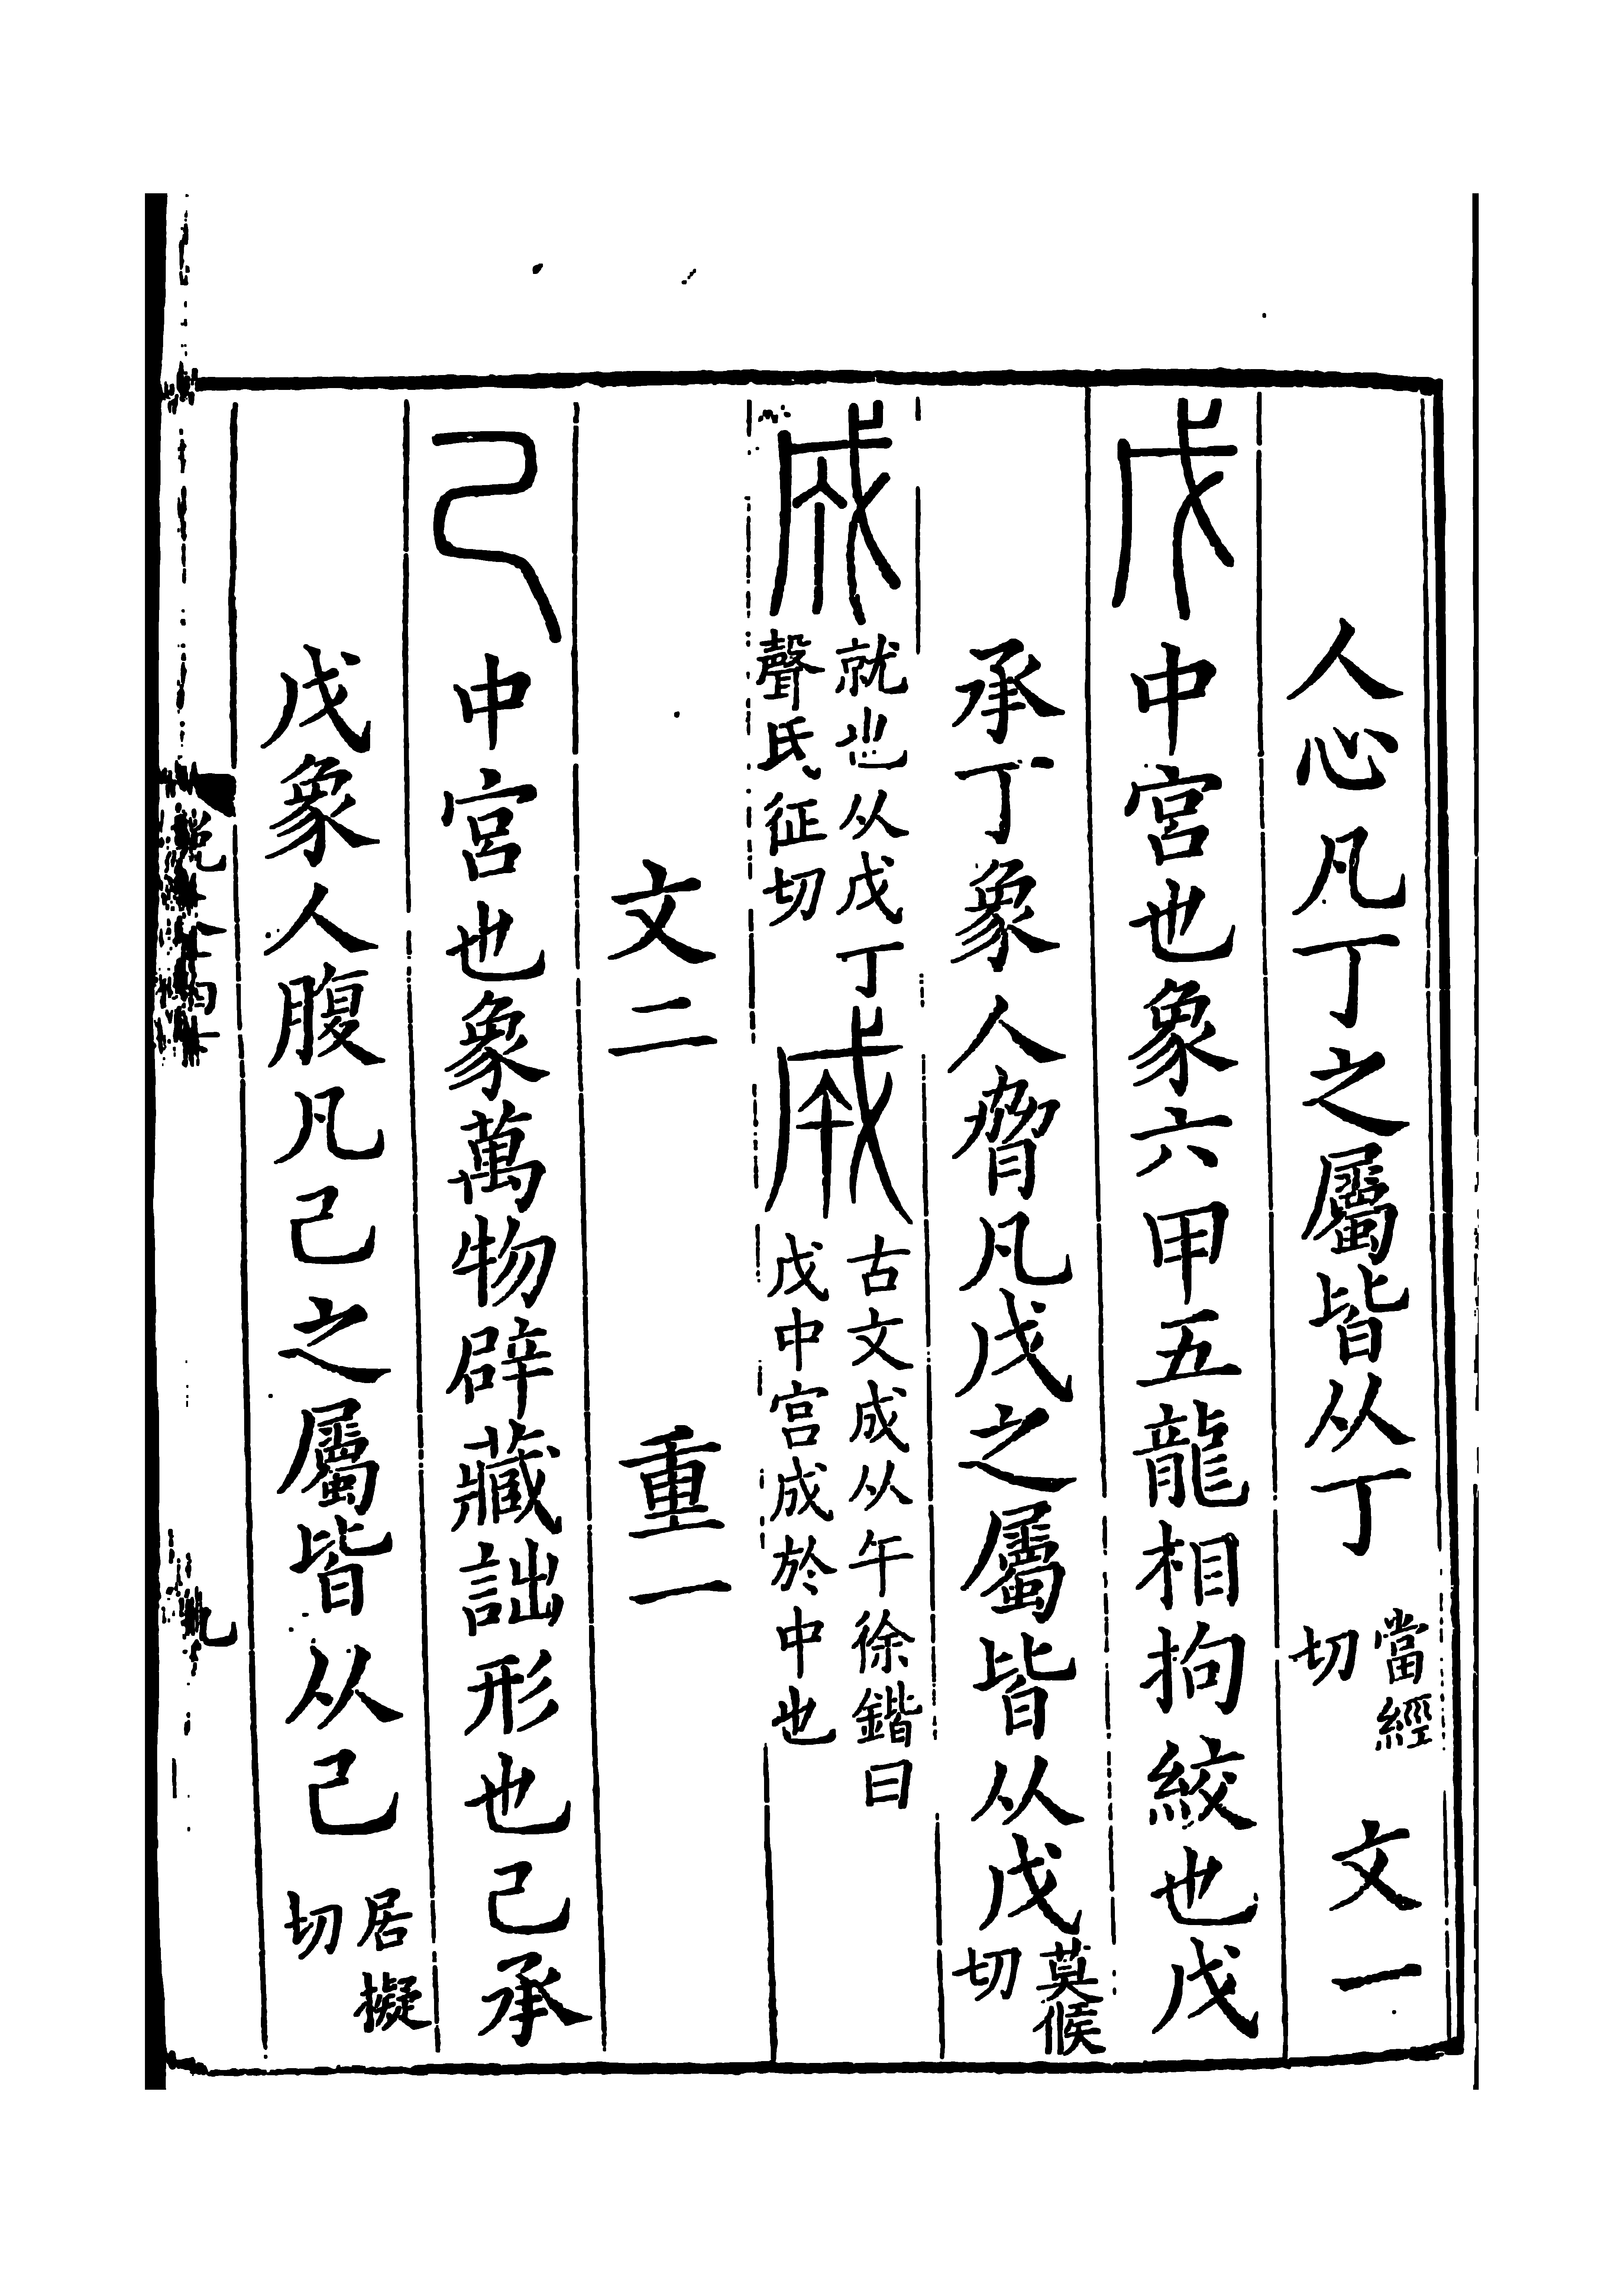 人心凡丁之屬皆从丁當經切 文一
戊中宮也象六甲五龍相拘絞也戊
承丁象人脅凡戊之屬皆从戊莫候切
成就也从戊丁聲氏征切 𢦩古文成从午徐鍇曰戊中宮成於中也
文二 重一
己中宮也象萬物辟藏詘形也己承
戊象人腹凡己之屬皆从己居擬切